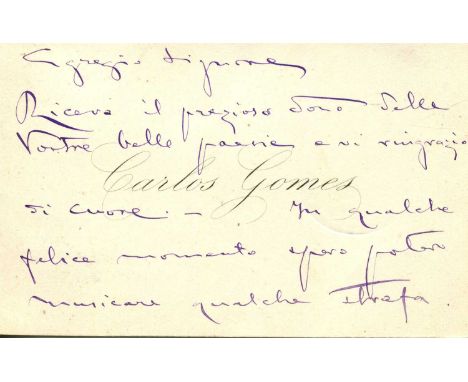 Egregio Signore
Ricevo il prezioso dono delle
Vostre belle poesie e vi ringrazio
Carlos Gomes
di cuore. — In qualche
felice momento spero potere
musicare qualche strofa.